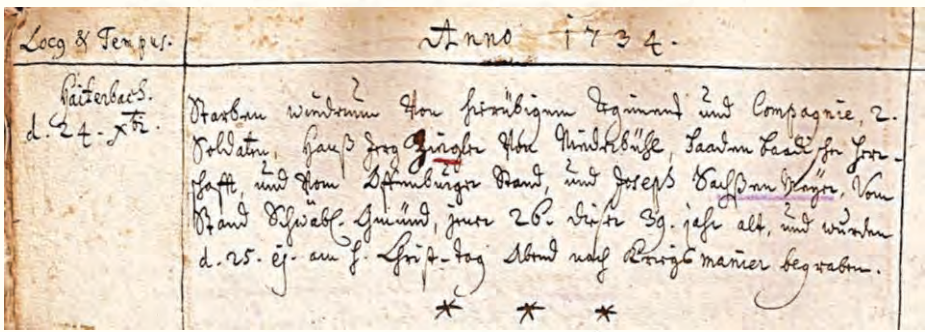 Locq & Tempus. Anno 1734.
Haiterbach.
d. 24. Xbr.
Starben wiederum Von hierübigem Regiment und Compagnie, 2.
Soldaten, Hanß Jerg Ziegler Von Niederbühl, Baaden Baadischer Herr-
schafft, und Vom Offenburger Stand, und Joseph Sachßenmayer, Vom
Stand Schwäb. Gmünd, jener 26. dieser 39. jahr alt, und wurden
d. 25. ej. am h. Christ-tag Abend nach Kriegs manier begraben.
* * *